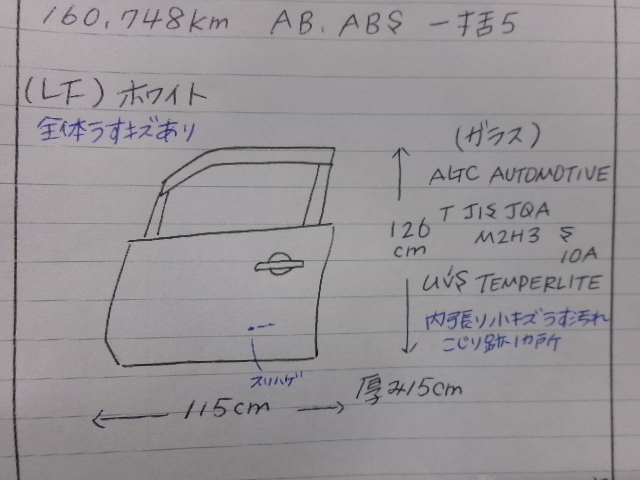 160,748km AB. ABS 一括5
(LF) ホワイト
全体うすキズあり
(ガラス)
AGC AUTOMOTIVE
T JIS JQA
M2H3 S
10A
UVS TEMPERLITE
126
cm
内張り小キズうす汚れ
こじり跡1カ所
スリハゲ
115cm
厚み15cm